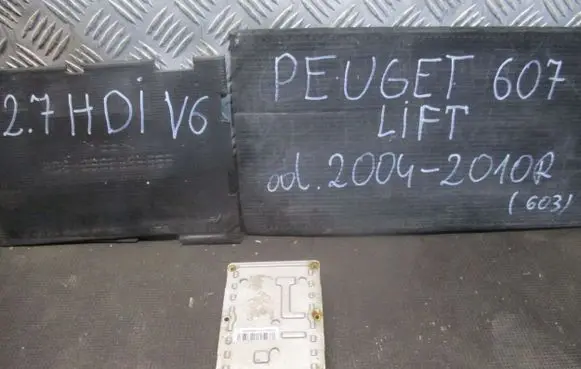 2.7 HDi V6
PEUGET 607
LiFT
od. 2004-2010R
(603)